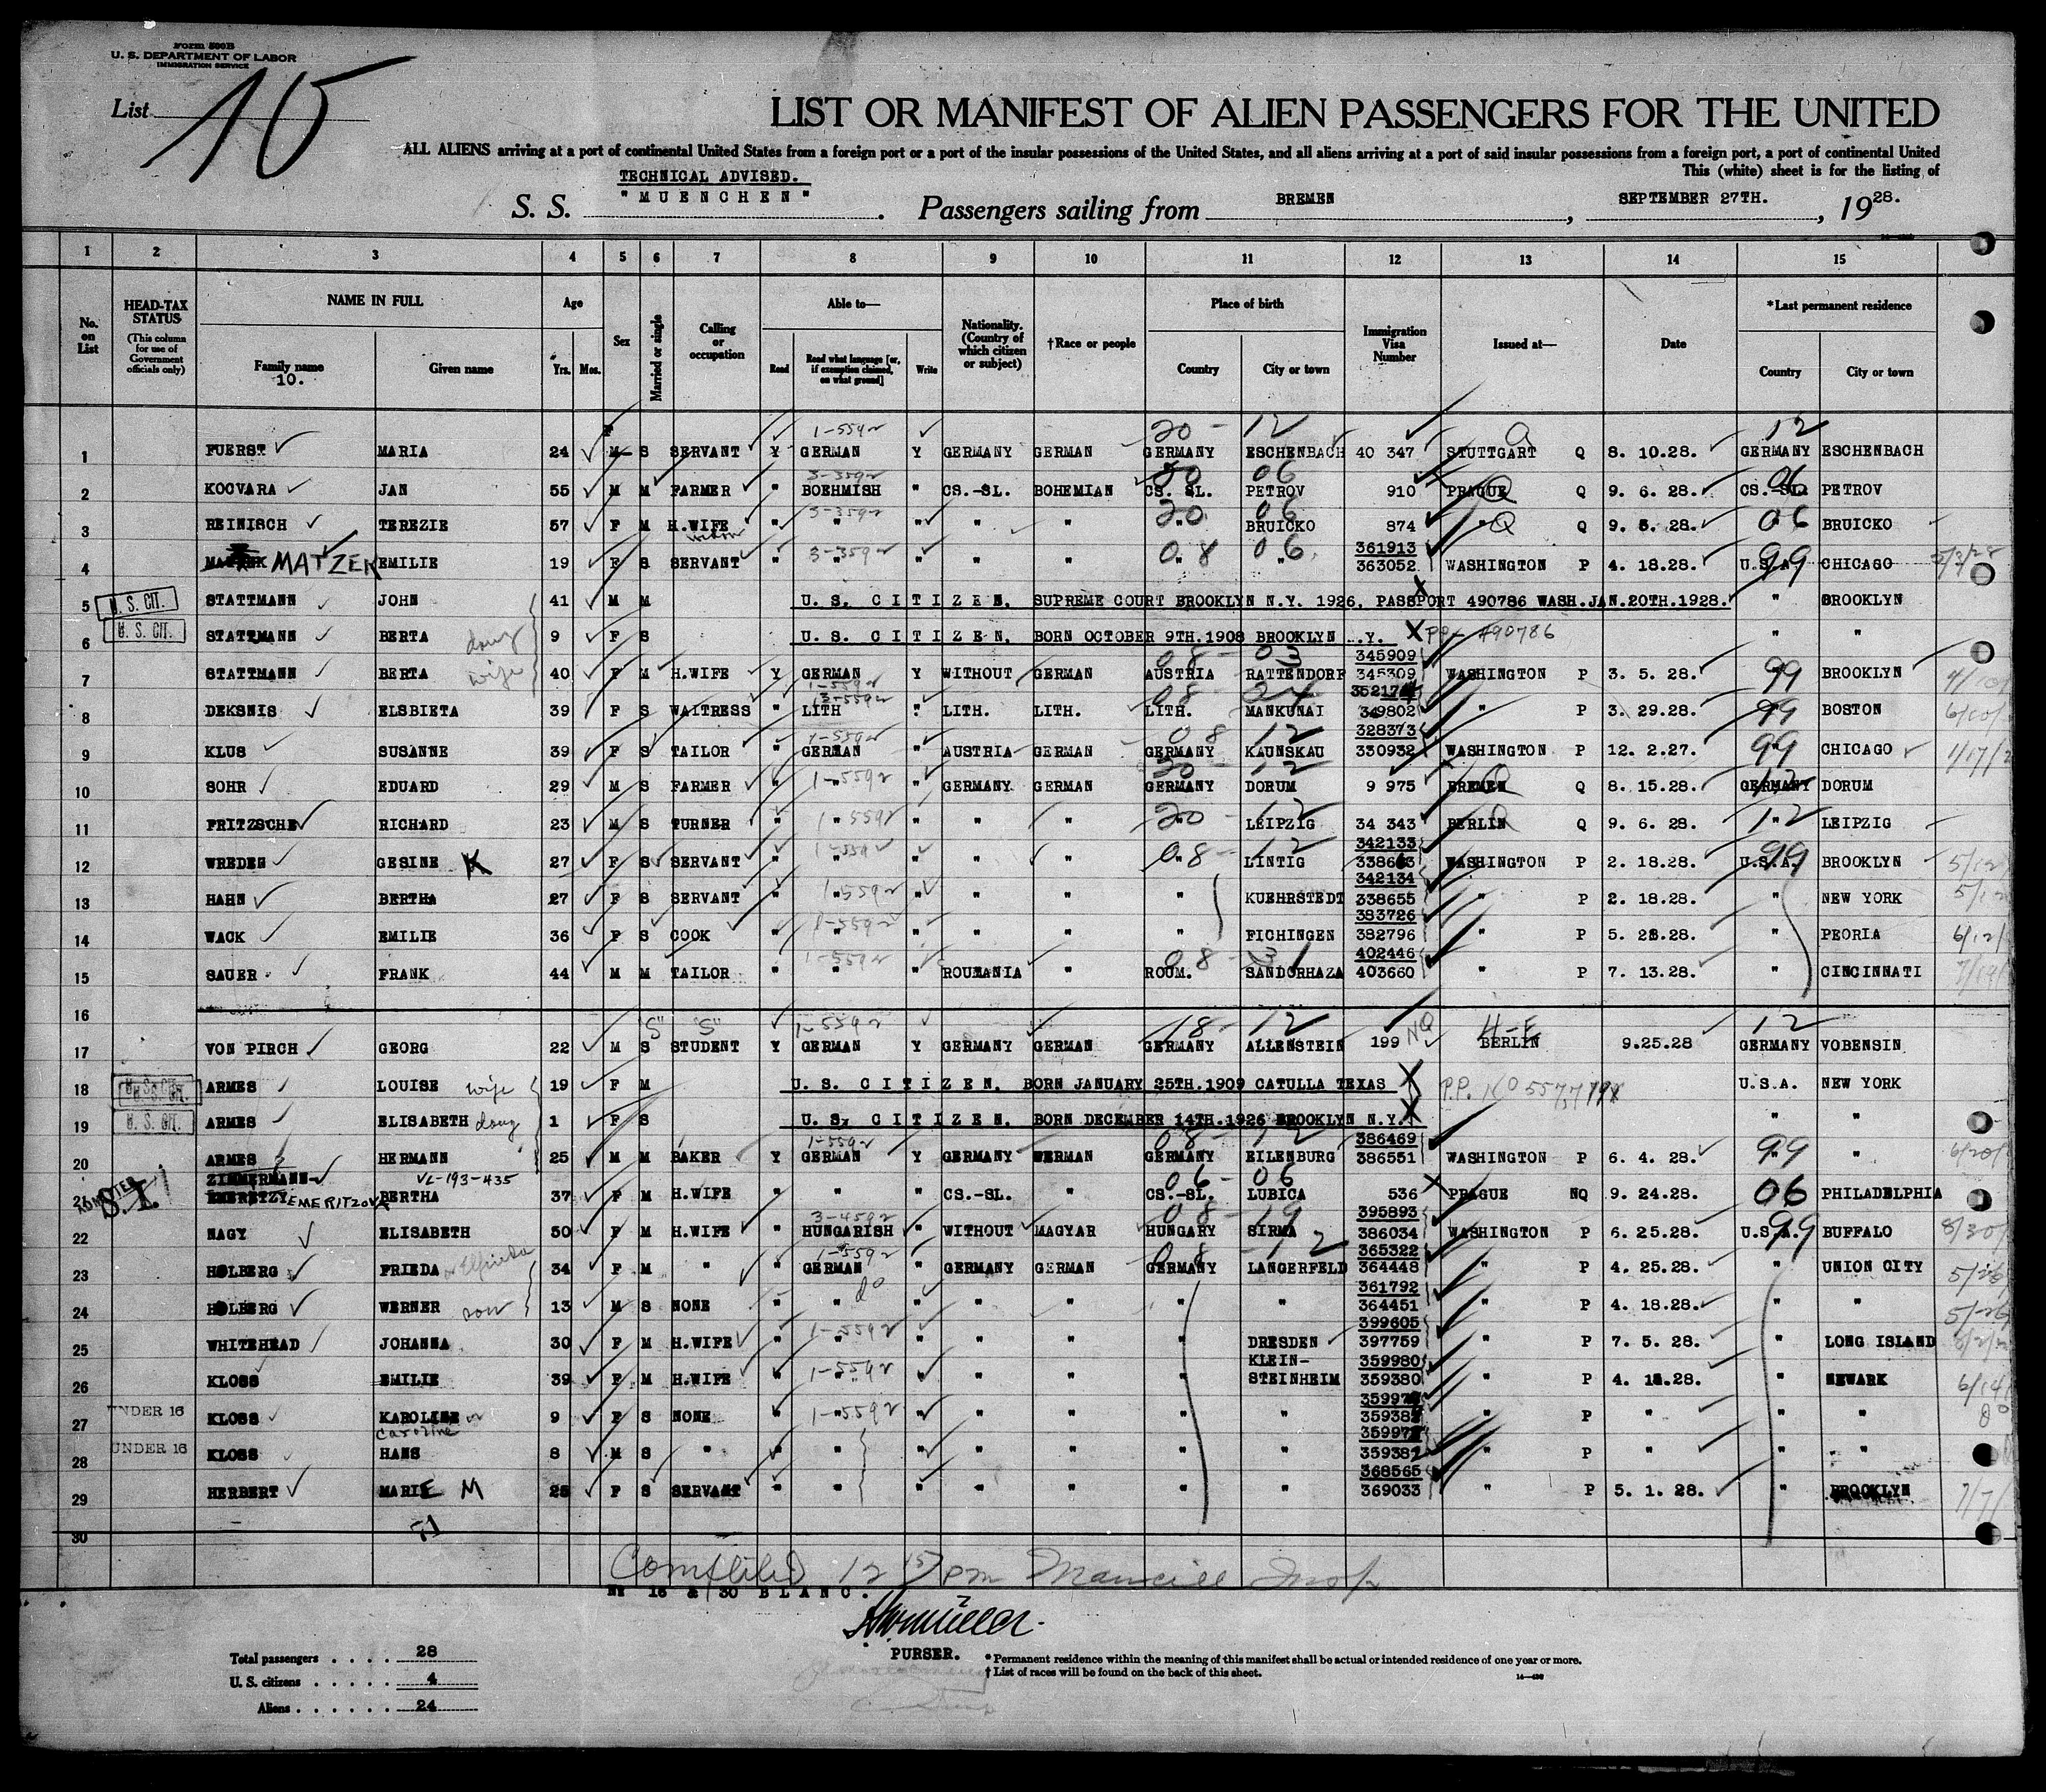 Form 500B
U. S. DEPARTMENT OF LABOR
IMMIGRATION SERVICE
List 10
LIST OR MANIFEST OF ALIEN PASSENGERS FOR THE UNITED
ALL ALIENS arriving at a port of continental United States from a foreign port or a port of the insular possessions of the United States, and all aliens arriving at a port of said insular possessions from a foreign port, a port of continental United
This (white) sheet is for the listing of
TECHNICAL ADVISED.
S. S. "MUENCHEN". Passengers sailing from BREMEN, SEPTEMBER 27TH., 1928.
1 2 3 4 5 6 7 8 9 10 11 12 13 14 15
No. on List
HEAD-TAX STATUS (This column for use of Government officials only)
NAME IN FULL
Family name 10.
Given name
Age Yrs. Mos.
Sex
Married or single
Calling or occupation
Able to—
Read
Read what language [or, if exemption claimed, on what ground]
Write
Nationality. (Country of which citizen or subject)
†Race or people
Place of birth
Country
City or town
Immigration Visa Number
Issued at—
Date
*Last permanent residence
Country
City or town
1-559
20 - 12 12
1 FUERST MARIA 24 F M S SERVANT Y GERMAN Y GERMANY GERMAN GERMANY ESCHENBACH 40 347 STUTTGART Q 8. 10.28. GERMANY ESCHENBACH
3-359
06 06
2 KOCVARA JAN 55 M M FARMER " BOEHMISH " CS.-SL. BOHEMIAN CS. SL. PETROV 910 PRAGUE Q 9. 6. 28. CS.-SL. PETROV
3-359
20 06 06
3 REINISCH TEREZIE 57 F M H.WIFE " " " " " " BRUICKO 874 " Q 9. 5. 28. " BRUICKO
3-359
08 06 361913 99
4 MATZEK EMILIE 19 F S SERVANT " " " " " " " 363052 WASHINGTON P 4. 18.28. U.S.A. CHICAGO
5 U. S. CIT. STATTMANN JOHN 41 M M U. S. CITIZEN. SUPREME COURT BROOKLYN N.Y. 1926. PASSPORT 490786 WASH.JAN.20TH.1928. " BROOKLYN
6 U. S. CIT. STATTMANN BERTA daug 9 F S U. S. CITIZEN. BORN OCTOBER 9TH.1908 BROOKLYN .Y. X PP- 490786 " "
08 - 03 345909
7 STATTMANN BERTA wife 40 F M H.WIFE Y GERMAN Y WITHOUT GERMAN AUSTRIA RATTENDORF 345309 WASHINGTON P 3. 5. 28. 99 BROOKLYN
1-559
08 - 24
8 DEKSNIS ELSBIETA 39 F S WAITRESS " LITH " LITH. LITH. LITH. MANKUNAI 349802 " P 3. 29.28. 99 BOSTON
1-559
08 12 328373
9 KLUS SUSANNE 39 F S TAILOR " GERMAN " AUSTRIA GERMAN GERMANY KAUNSKAU 330932 WASHINGTON P 12. 2.27. 99 CHICAGO
20 - 12
10 SOHR EDUARD 29 M S FARMER " " 1-559 " GERMANY GERMAN GERMANY DORUM 9 975 BREMEN Q 8. 15.28. GERMANY DORUM
20 - 12 12
11 FRITZSCHE RICHARD 23 M S TURNER " " 1-559 " " " " LEIPZIG 34 343 BERLIN Q 9. 6. 28. " LEIPZIG
08 - 12 342133 99
12 WREDEN GESINE K 27 F S SERVANT " " 1-559 " " " " LINTIG 338663 WASHINGTON P 2. 18.28. U.S.A. BROOKLYN 5/12
342134
13 HAHN BERTHA 27 F S SERVANT " " 1-559 " " " " KUEHRSTEDT 338655 " P 2. 18.28. " NEW YORK
383726
14 WACK EMILIE 36 F S COOK " " 1-559 " " " " FICHINGEN 382796 " P 5. 28.28. " PEORIA 6/12/
1-559
08 - 31 402446
15 SAUER FRANK 44 M M TAILOR " " " ROUMANIA " ROUM. SANDORHAZA 403660 " P 7. 13.28. " CINCINNATI
16
"S" "S" 1-559 18 - 12 NQ 12
17 VON PIRCH GEORG 22 M S STUDENT Y GERMAN Y GERMANY GERMAN GERMANY ALLENSTEIN 199 BERLIN 9.25.28 GERMANY VOBENSIN
18 U. S. CIT. ARMES LOUISE wife 19 F M U. S. CITIZEN. BORN JANUARY 25TH.1909 CATULLA TEXAS X U.S.A. NEW YORK
19 U. S. CIT. ARMES ELISABETH daug 1 F S U. S. CITIZEN. BORN DECEMBER 14TH.1926 BROOKLYN N.Y. X " "
1-559 08 - 12 386469
20 ARMES HERMANN 25 M M BAKER Y GERMAN Y GERMANY GERMAN GERMANY EILENBURG 386551 WASHINGTON P 6. 4. 28. 99 "
ZIMMERMANN VL-193-435 06 - 06
21 S.I. EMERITZOVA BERTHA 37 F M H.WIFE " " " CS.-SL. " CS.-SL. LUBICA 536 PRAGUE NQ 9. 24.28. 06 PHILADELPHIA
3-459 08 - 19 395893
22 NAGY ELISABETH 50 F M H.WIFE " HUNGARISH " WITHOUT MAGYAR HUNGARY SIRMA 386034 WASHINGTON P 6.25.28. U.S.A. 99 BUFFALO 8/30/
1-559 08 - 12 365322
23 HOLBERG FRIEDA or Elfrieda 34 F M " " GERMAN " GERMANY GERMAN GERMANY LANGERFELD 364448 " P 4. 25.28. " UNION CITY 5/26
do 361792
24 HOLBERG WERNER son 13 M S NONE " " " " " " " 364451 " P 4. 18.28. " " 5/26
399605
25 WHITEHEAD JOHANNA 30 F M H.WIFE " " 1-559 " " " " DRESDEN 397759 " P 7. 5. 28. " LONG ISLAND
KLEIN- 359980
26 KLOSS EMILIE 39 F M H.WIFE " " 1-559 " " " " STEINHEIM 359380 " P 4. 18.28. " NEWARK 6/14
27 UNDER 16 KLOSS KAROLINE or Caroline 9 F S NONE " 1-559 " " " " " " P " " "
28 UNDER 16 KLOSS HANS 8 M S " " " " " " " " " P " " "
368565
29 HERBERT MARIE M 25 F S SERVANT " " " " " " " 369033 " P 5. 1. 28. " BROOKLYN 7/7/
30
Completed 12 15 pm Insp
No 16 & 30 BLANC.
PURSER.
Total passengers . . . . 28
U. S. citizens . . . . . 4
Aliens . . . . . . 24
* Permanent residence within the meaning of this manifest shall be actual or intended residence of one year or more.
† List of races will be found on the back of this sheet.